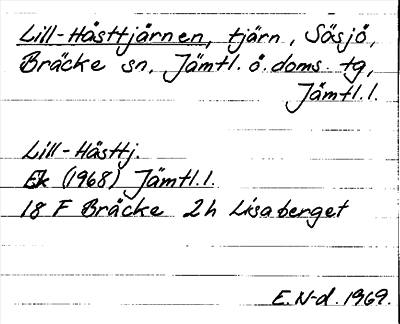 Lill-Hästtjärnen, tjärn, Säsjö,
Bräcke sn, Jämtl. ö. doms. tg,
Jämtl.l.
Lill-Hästtj.
Ek (1968) Jämtl.l.
18 F Bräcke 2h Lisaberget
E. N-d. 1969.